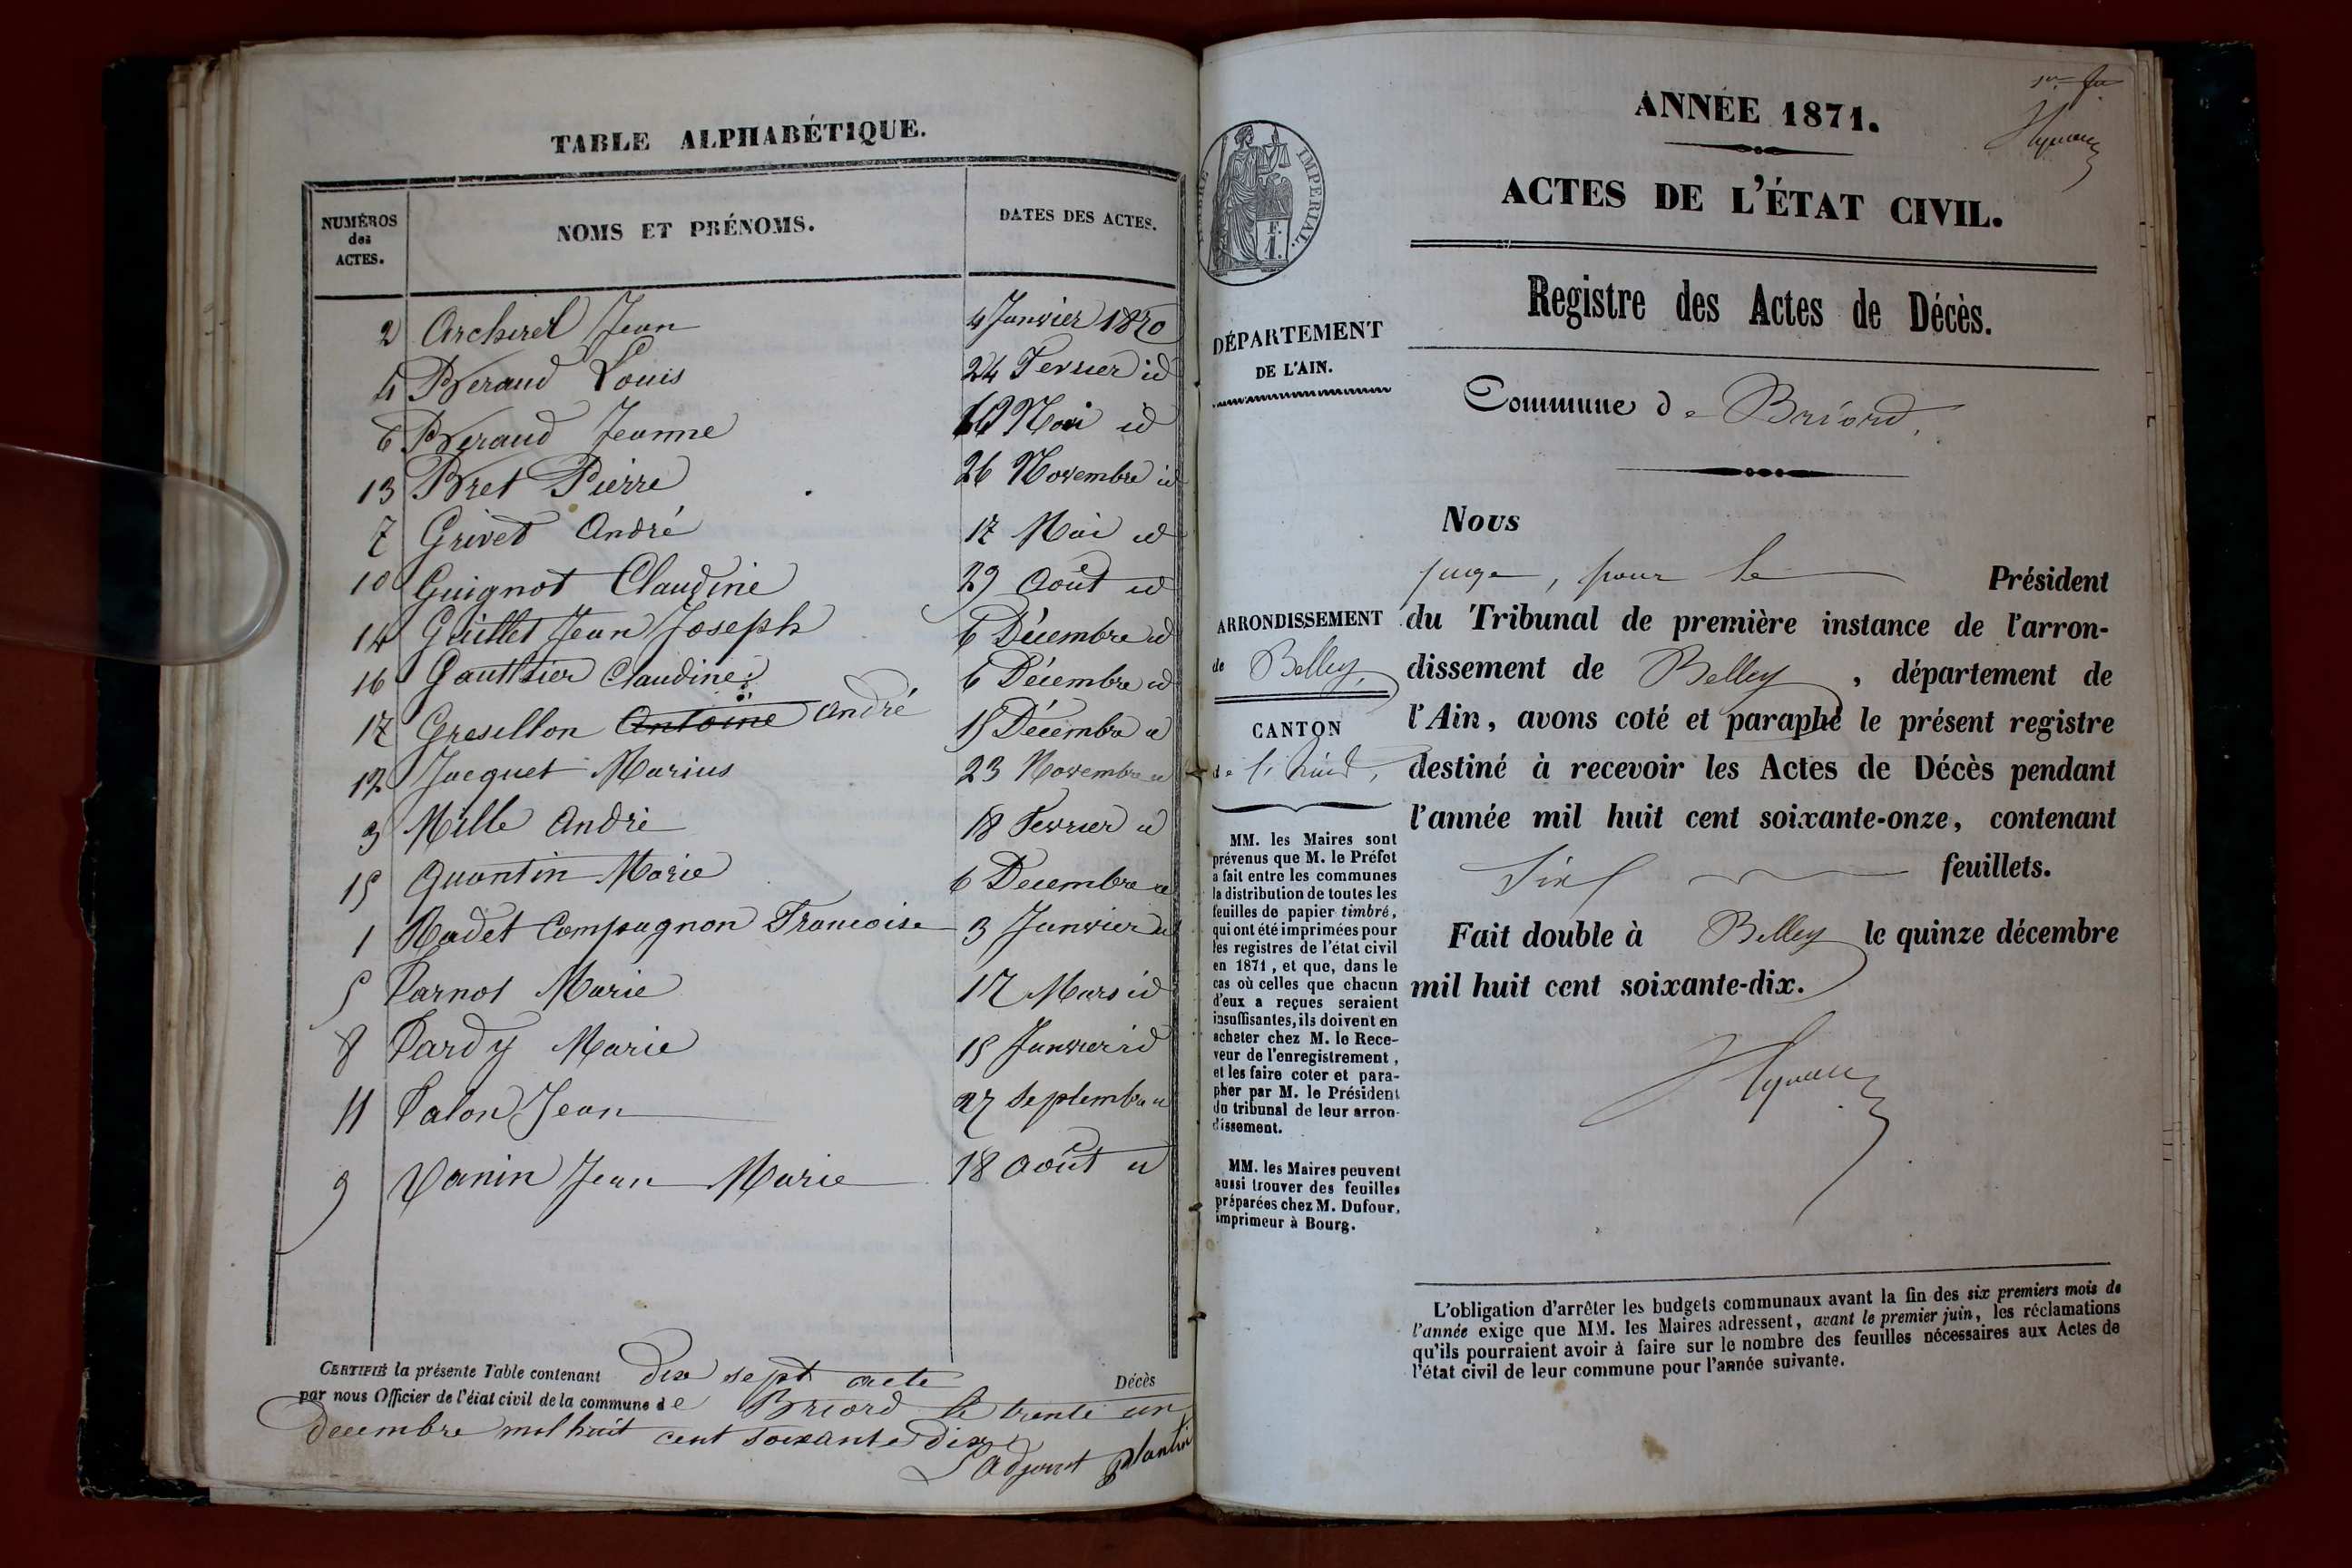 TABLE ALPHABÉTIQUE.
NUMÉROS des ACTES.
NOMS ET PRÉNOMS.
DATES DES ACTES.
2 Archiret Jean 4 Janvier 1870
4 Beraud Louis 24 Fevrier id
6 Beraud Jeanne 10 Mai id
13 Bret Pierre 26 Novembre id
7 Grivet André 17 Mai id
10 Guignot Claudine 29 Août id
14 Guillet Jean Joseph 6 Décembre id
16 Gauthier Claudine 6 Décembre id
17 Gresillon Antoine André 15 Décembre id
12 Jacquet Marius 23 Novembre id
3 Mille André 18 Fevrier id
15 Quantin Marie 6 Decembre id
1 Radet Compagnon Francoise 3 Janvier id
5 Tarnot Marie 17 Mars id
8 Tardy Marie 15 Janvier id
11 Talon Jean 27 Septembre id
9 Vanin Jean Marie 18 Août id
CERTIFIÉ la présente Table contenant dix sept acte Décès
par nous Officier de l'état civil de la commune de Briord le trente un
decembre mil huit cent soixante dix
L'adjoint Plantin
TIMBRE IMPERIAL.
F.
1.
DÉPARTEMENT
DE L'AIN.
ARRONDISSEMENT
de Belley,
CANTON
MM. les Maires sont
prévenus que M. le Préfet
a fait entre les communes
la distribution de toutes les
feuilles de papier timbré,
qui ont été imprimées pour
les registres de l'état civil
en 1871, et que, dans le
cas où celles que chacun
d'eux a reçues seraient
insuffisantes, ils doivent en
acheter chez M. le Rece-
veur de l'enregistrement,
et les faire coter et para-
pher par M. le Président
du tribunal de leur arron-
dissement.
MM. les Maires peuvent
aussi trouver des feuilles
préparées chez M. Dufour,
imprimeur à Bourg.
ANNÉE 1871.
ACTES DE L'ÉTAT CIVIL.
Registre des Actes de Décès.
Commune de Briord.
Nous
juge, pour le Président
du Tribunal de première instance de l'arron-
dissement de Belley, département de
l'Ain, avons coté et paraphé le présent registre
destiné à recevoir les Actes de Décès pendant
l'année mil huit cent soixante-onze, contenant
Six feuillets.
Fait double à Belley le quinze décembre
mil huit cent soixante-dix.
L'obligation d'arrêter les budgets communaux avant la fin des six premiers mois de
l'année exige que MM. les Maires adressent, avant le premier juin, les réclamations
qu'ils pourraient avoir à faire sur le nombre des feuilles nécessaires aux Actes de
l'état civil de leur commune pour l'année suivante.